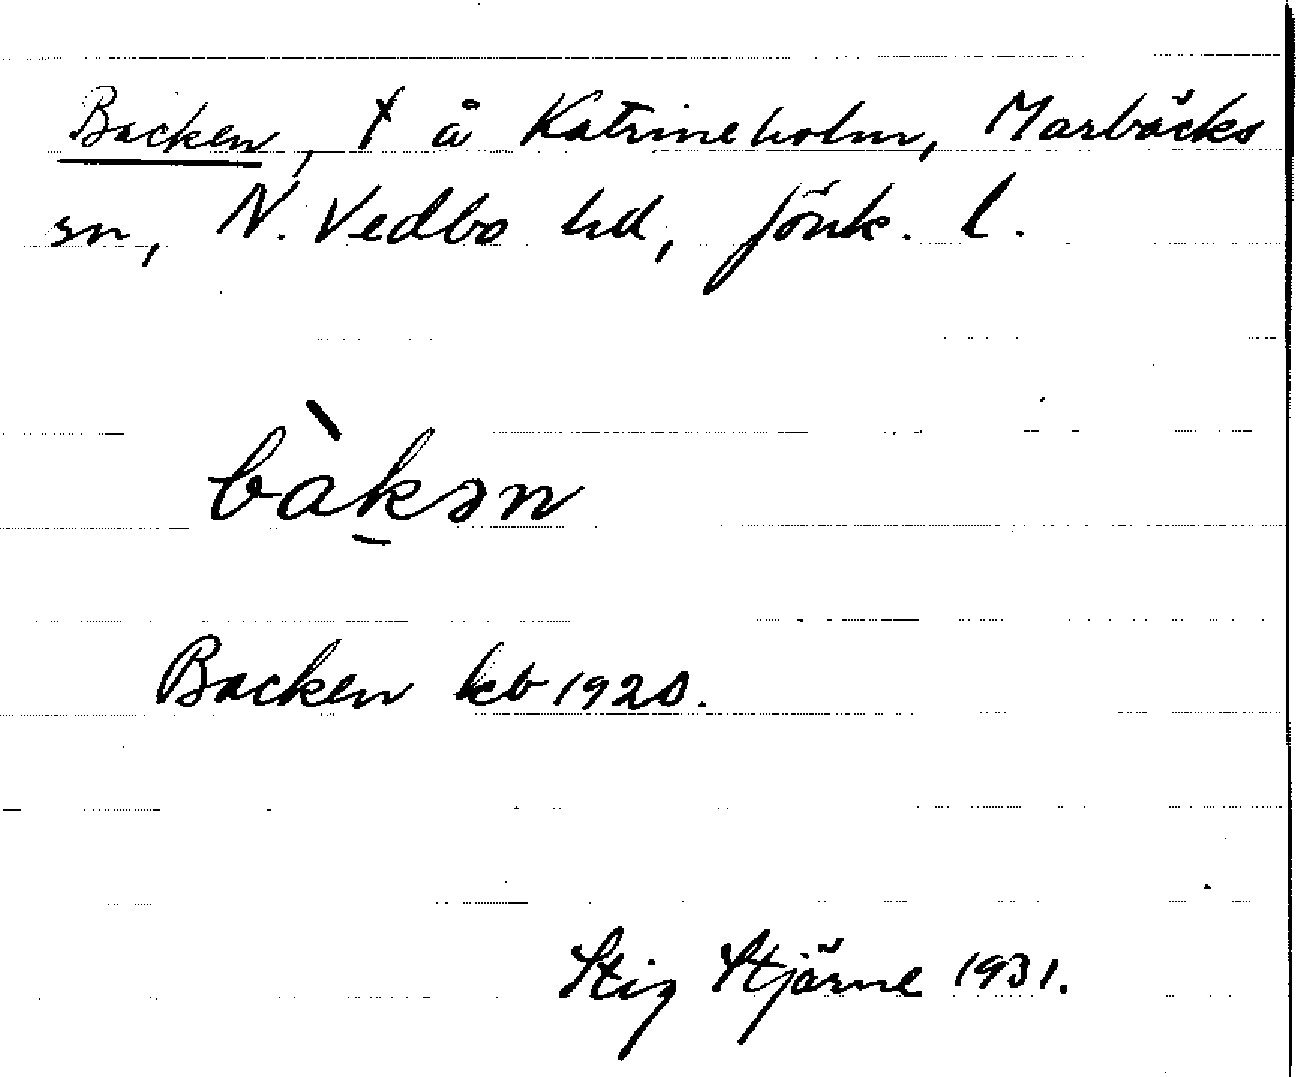 Backen, t å Katrineholm, Marbäcks
sn, N. Vedbo hd, Jönk. l.
bàkən
Backen kb 1920.
Stig Stjärne 1931.